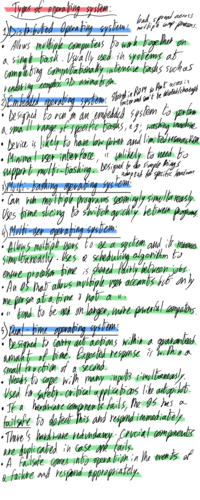 Types of operating system:
1) Distributed Operating system:
load spread across multiple comp. processors.
• Allows multiple computers to work together on
a single task. Usually used in systems at
completing computationally intensive tasks such as
rendering complex 3D animation
2) Embedded operating system:
• Designed to run in an embedded system to perform
a small range of specific tasks, e.g; washing machine
• Device is likely to have low power and limited
• Minimal user interface, is unlikely to need to
support multi-tasking. Designed to do simple things
3) Multi-tasking operating system:
• Can run multiple programs seemingly simultaneously.
Uses time slicing to switch quickly between programs
4) Multi-user operating system:
• Allows multiple users to use a system and it's resources
simultaneously. Uses a scheduling algorithm to
ensure processor time is shared fairly between jobs.
• An OS that allows multiple user accounts but only
one person at a time is not a "
• " tend to be used on larger, more powerful computers.
5) Real time operating system:
• Designed to carry out actions within a guaranteed
amount of time. Expected response is within a
small fraction of a second.
• Needs to cope with many inputs simultaneously.
Used to safety critical applications like autopilot.
• If a hardware component fails, the OS has a
failsafe to detect this and respond immediately.
• There's hardware redundancy. Crucial components
are duplicated in case one fails.
• A failsafe comes into operation in the events of
a failure and respond appropriately.